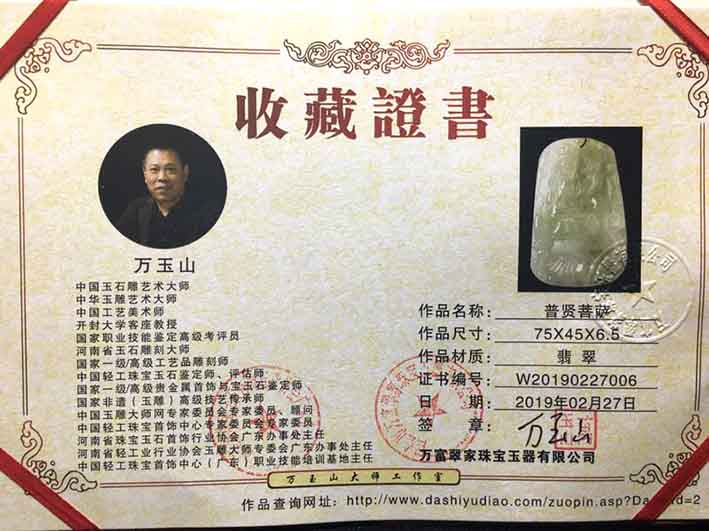 收藏證書
万玉山
中国玉石雕艺术大师
中华玉雕艺术大师
中国工艺美术师
开封大学客座教授
国家职业技能鉴定高级考评员
河南省玉石雕刻大师
国家一级/高级工艺品雕刻师
中国轻工珠宝玉石鉴定师、评估师
国家一级/高级贵金属首饰与宝玉石鉴定师
国家非遗（玉雕）高级技艺传承师
中国玉雕大师网专家委员会专家委员、顾问
中国轻工珠宝首饰中心专家委员会专家委员
河南省珠宝玉石首饰行业协会广东办事处主任
河南省轻工业行业协会玉雕大师专委会广东办事处主任
中国轻工珠宝首饰中心（广东）职业技能培训基地主任
作品名称：普贤菩萨
作品尺寸：75X45X6.5
作品材质：翡翠
证书编号：W20190227006
日期：2019年02月27日
签章：万玉山
万富翠家珠宝玉器有限公司
万玉山大师工作室
作品查询网址：http://www.dashiyudiao.com/zuopin.asp?DaShiId=2